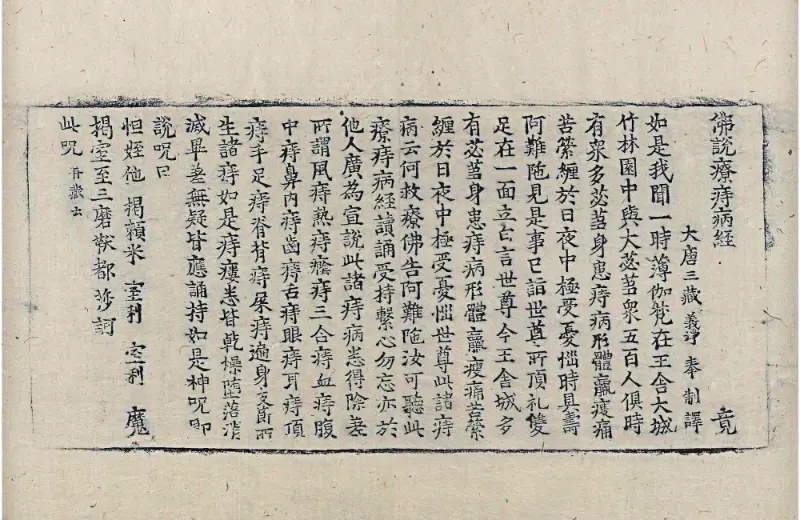 佛說療痔病経 竟
大唐三藏義淨 奉 制譯
如是我聞一時薄伽梵在王舍大城
竹林園中與大苾芻衆五百人俱時
有衆多苾芻身患痔病形體羸瘦痛
苦縈纏於日夜中極受憂惱時具壽
阿難陁見是事已詣世尊所頂礼雙
足在一面立白言世尊今王舍城多
有苾芻身患痔病形體羸瘦痛苦縈
纏於日夜中極受憂惱世尊此諸痔
病云何救療佛告阿難陁汝可聽此
療痔病経讀誦受持繫心勿忘亦於
他人廣為宣說此諸痔病悉得除差
所謂風痔熱痔癊痔三合痔血痔腹
中痔鼻內痔齒痔舌痔眼痔耳痔頂
痔手足痔脊背痔屎痔遍身支節所
生諸痔如是痔瘻悉皆乾燥墮落消
滅畢差無疑皆應誦持如是神呪即
說呪曰
怛姪他 揭頼米 室利 室利 魔
揭室至三磨䇘都莎訶
此呪